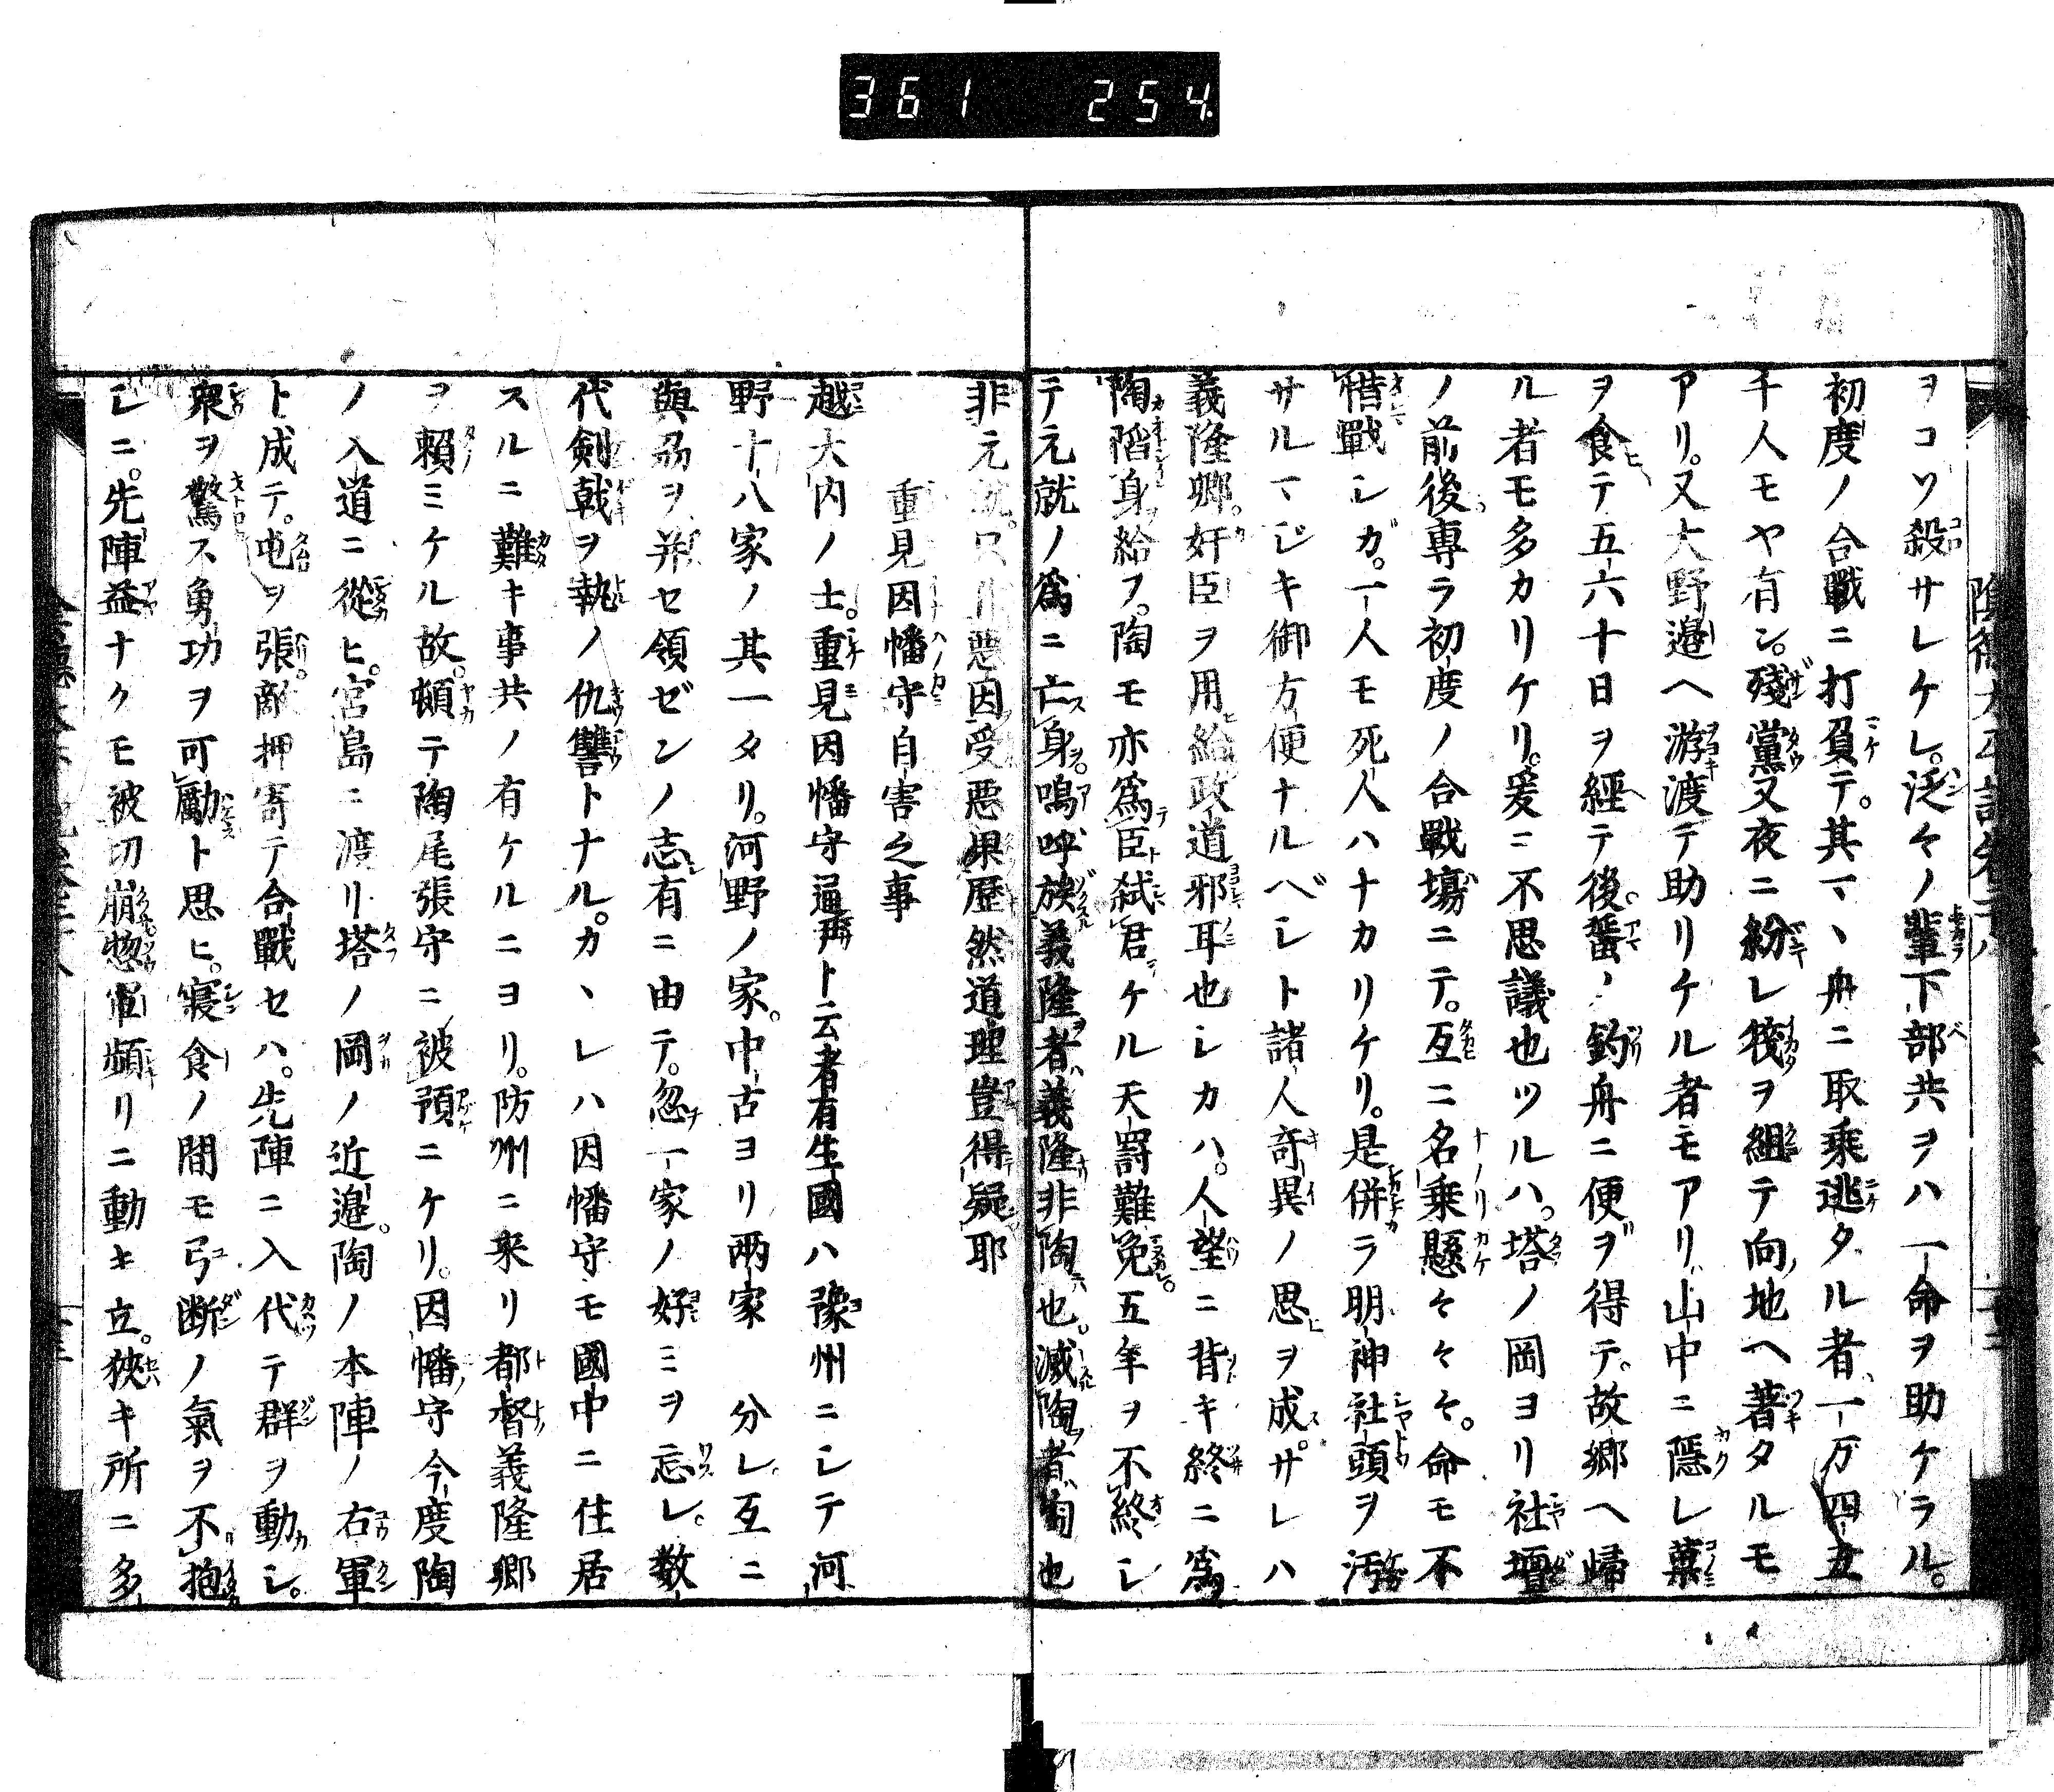 361 254
ヲコソ殺サレケレ。泛々ノ輩下部共ヲハ一命ヲ助ケラル。
初度ノ合戰ニ打負テ。其マヽ舟ニ取乘逃タル者一万四五
千人モヤ有ン。殘黨又夜ニ紛レ筏ヲ組テ向地ヘ著タルモ
アリ。又大野邉ヘ游渡テ助リケル者モアリ山中ニ隱レ菓
ヲ食テ五六十日ヲ經テ後。蜑ノ釣舟ニ便ヲ得テ。故郷ヘ歸
ル者モ多カリケリ。爰ニ不思議也ツルハ。塔ノ岡ヨリ社壇
ノ前後専ラ初度ノ合戰塲ニテ。互ニ名乘懸々々々。命モ不
惜戰シガ。一人モ死人ハナカリケリ。是併ラ明神社頭ヲ汚
サルマジキ御方便ナルベシト諸人奇異ノ思ヲ成サレハ
義隆卿。奸臣ヲ用給政道邪耳也シカハ。人望ニ背キ終ニ爲
陶陷身給フ。陶モ亦爲臣弑君ケル天罸難免。五年ヲ不終シ
テ元就ノ爲ニ亡身。嗚呼族義隆者義隆非陶也。滅陶者陶也
非元就。只非惡因受惡果歴然道理豈得疑耶
重見因幡守自害之事
越大内ノ士。重見因幡守通䎃ト云者有生國ハ豫州ニシテ河
野十八家ノ其一タリ。河野ノ家。中古ヨリ兩家 分レ互ニ
與刕ヲ并セ領ゼンノ志有ニ由テ。忽一家ノ好ミヲ忘レ。数
代剣戟ヲ執ノ仇讐トナル。カヽレハ因幡守モ國中ニ住居
スルニ難キ事共ノ有ケルニヨリ。防州ニ來リ都督義隆卿
ヲ賴ミケル故。頓テ陶尾張守ニ被預ニケリ。因幡守今度陶
ノ入道ニ從ヒ。宮島ニ渡リ塔ノ岡ノ近邉。陶ノ本陣ノ右軍
ト成テ。屯ヲ張。敵押寄テ合戰セハ。先陣ニ入代テ群ヲ動シ。
衆ヲ驚ス勇功ヲ可勵ト思ヒ。寢食ノ間モ弓断ノ氣ヲ不抱
シニ。先陣益ナクモ被切崩惣軍頻リニ動キ立。狹キ所ニ多